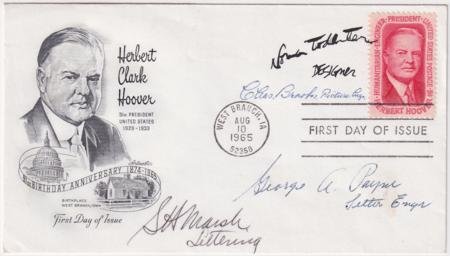 Herbert
Clark
Hoover
31st PRESIDENT
UNITED STATES
1929 - 1933
91st BIRTHDAY ANNIVERSARY 1874-1965
BIRTHPLACE
WEST BRANCH, IOWA
First Day of Issue
Norman Todhunter
DESIGNER
Chas. Brooks Picture Engr.
WEST BRANCH, IA
AUG
10
1965
52358
FIRST DAY OF ISSUE
HUMANITARIAN · ENGINEER · PRESIDENT · UNITED STATES POSTAGE 5¢
HERBERT HOOVER
George A. Payne
Letter Engr
S H Marsh
Lettering